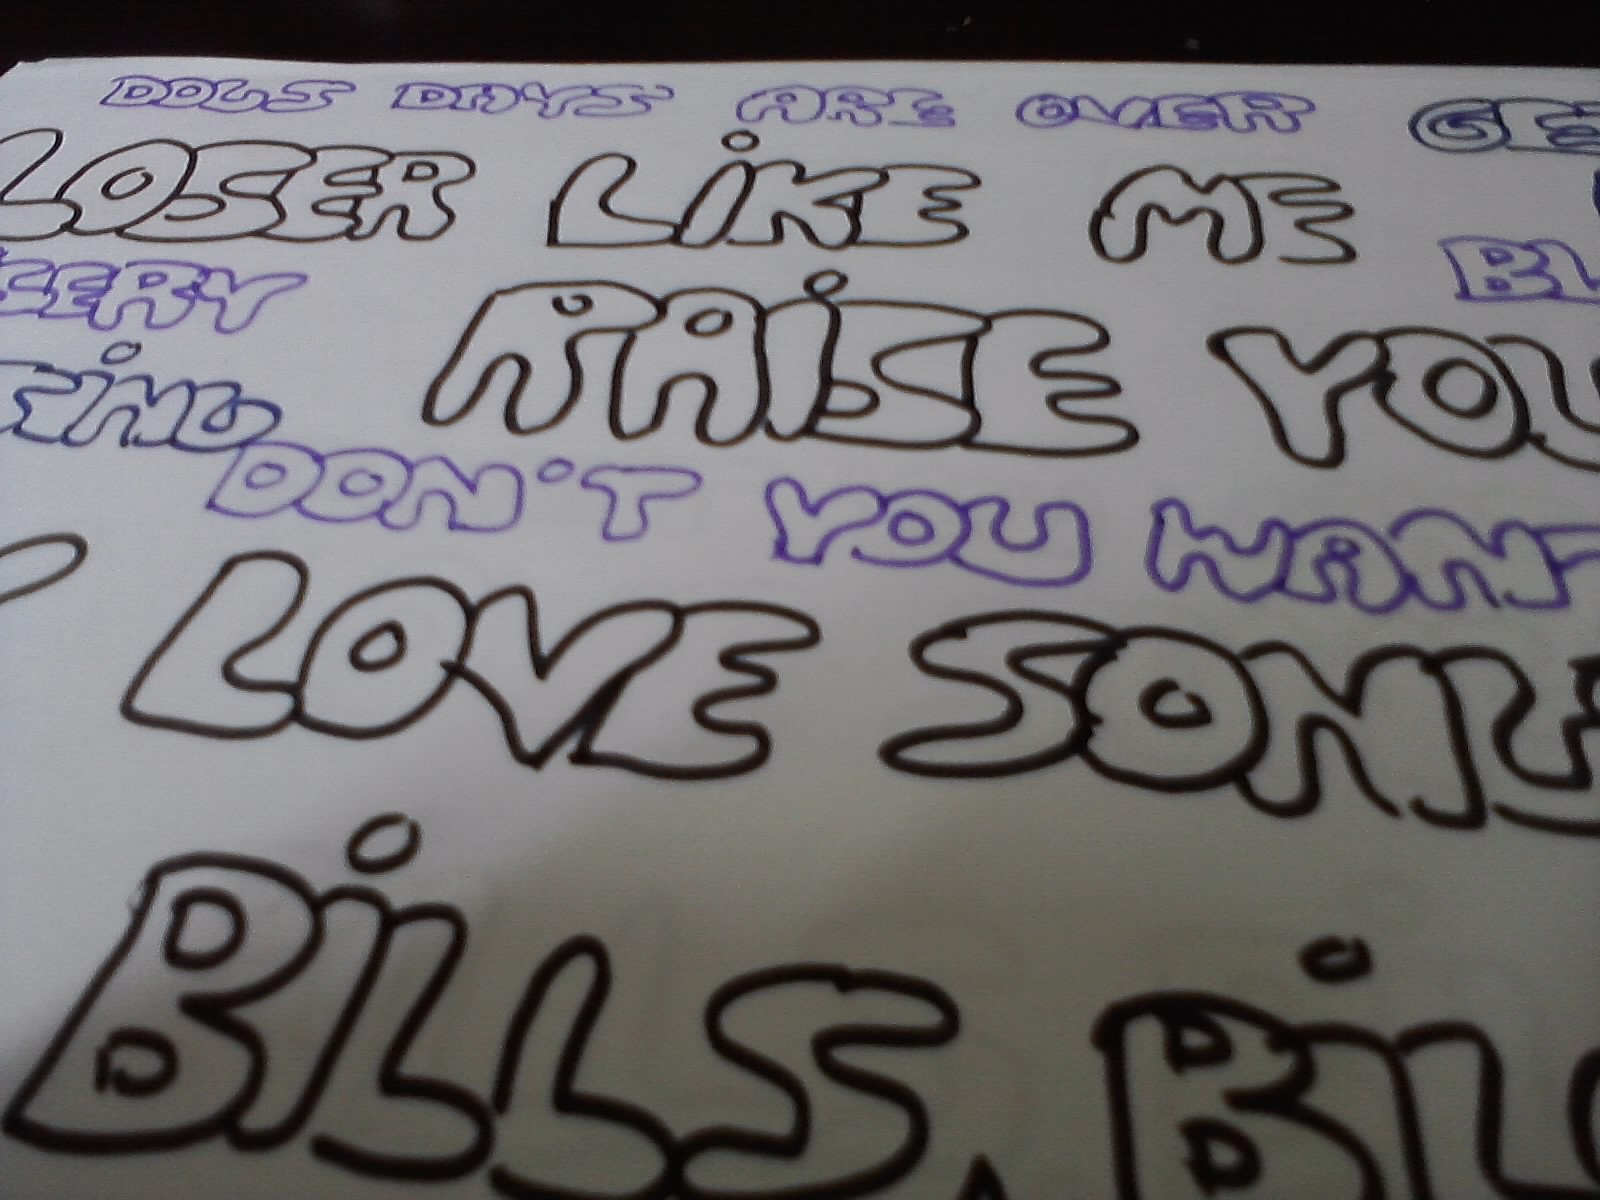 DOGS DAYS ARE OVER GE
LOSER LIKE ME
EERY BL
RAISE YOU
TING
DON'T YOU WANT
LOVE SONG
BILLS, BIL